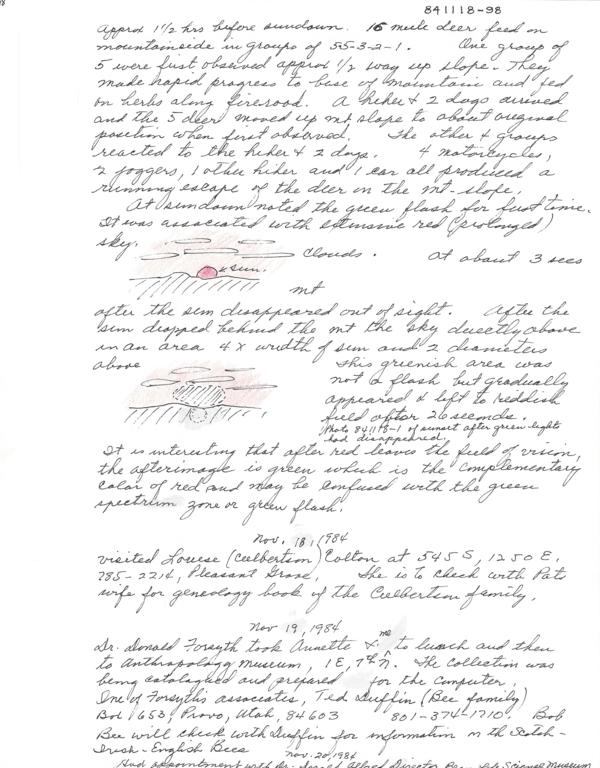 841118-98
approx 1 1/2 hrs before sundown. 16 mule deer feed on
mountainside in groups of 5-5-3-2-1. One group of
5 were first observed approx 1/2 way up slope. They
made rapid progress to base of mountain and fed
on herbs along fireroad. A hiker & 2 dogs arrived
and the 5 deer moved up mt slope to about original
position when first observed. The other 4 groups
reacted to the hiker & 2 dogs. 4 motorcycles,
2 joggers, 1 other hiker and 1 car all produced a
running escape of the deer on the mt-slope.
At sundown noted the green flash for first time.
It was associated with extensive red (prolonged)
sky.
clouds. at about 3 secs
sun.
mt
after the sun disappeared out of sight. After the
sun dropped behind the mt the sky directly above
in an area 4 x width of sun and 2 diameters
above This greenish area was
not a flash but gradually
appeared & left to reddish
field after 20 seconds.
Photo 841118-1 of sunset after green lights
had disappeared.
It is interesting that after red leaves the field of vision,
the afterimage is green which is the complementary
color of red and may be confused with the green
spectrum zone or green flash.
Nov. 18, 1984
visited Louise (Culbertson) Colton at 545 S, 1250 E,
785-2214, Pleasant Grove. She is to check with Pats
wife for geneology book of the Culbertson family.
Nov 19, 1984
Dr. Donald Forsyth took Annette & me to lunch and then
to Anthropology museum, 1E, 7th N. The collection was
being catalogued and prepared for the computer.
One of Forsyth's associates, Ted Duffin (Bee family)
Box 653, Provo, Utah, 84603 801-374-1710. Bob
Bee will check with Duffin for information on th Scotch-
Irish-English Bees
Nov. 20, 1984
Had appointment with Dr. Director Science Museum